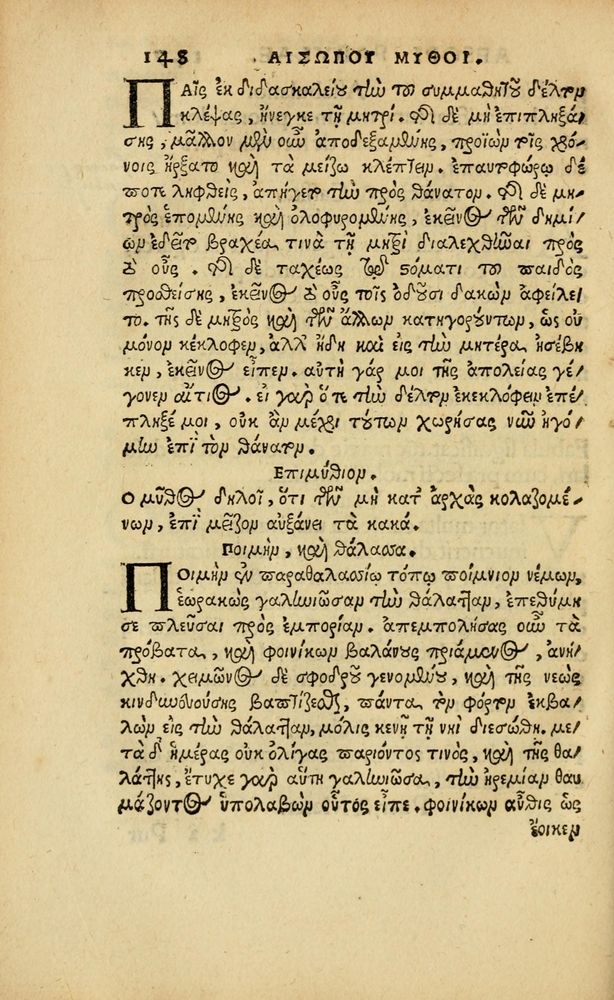 148 ΑΙΣΩΠΟΥ ΜΥΘΟΙ.
ΠΑῖς ἐκ διδασκαλείου τὴν τοῦ συμμαθητοῦ δέλτον
κλέψας, ἤνεγκε τῇ μητρί. τῆς δὲ μὴ ἐπιπληξά-
σης, μᾶλλον μὲν οὖν ἀποδεξαμένης, προϊὼν τοῖς χρό-
νοις ἤρξατο καὶ τὰ μείζω κλέπτειν. ἐπαυτοφώρῳ δέ
ποτε ληφθεὶς, ἀπήγετο τὴν πρὸς θάνατον. τῆς δὲ μη-
τρὸς ἑπομένης καὶ ὀλοφυρομένης, ἐκεῖνος τῶν δημί-
ων ἐδεῖτο βραχέα τινὰ τῇ μητρὶ διαλεχθῆναι πρὸς
τὸ οὖς. τῆς δὲ ταχέως τῷ στόματι τοῦ παιδὸς
προσθείσης, ἐκεῖνος τὸ οὖς τοῖς ὀδοῦσι δακὼν ἀφείλε-
το. τῆς δὲ μητρὸς καὶ τῶν ἄλλων κατηγορούντων, ὡς οὐ
μόνον κέκλοφεν, ἀλλ' ἤδη καὶ εἰς τὴν μητέρα ἠσέβη-
κεν, ἐκεῖνος εἶπεν. αὐτὴ γάρ μοι τῆς ἀπολείας γέ-
γονεν αἴτιος. εἰ γὰρ ὅτε τὴν δέλτον ἐκεκλόφειν ἐπέ-
πληξέ μοι, οὐκ ἂν μέχρι τούτων χωρήσας νῦν ἠγό-
μην ἐπὶ τὸν θάνατον.
Επιμύθιον.
Ο μῦθος δηλοῖ, ὅτι τῶν μὴ κατ' ἀρχὰς κολαζομέ-
νων, ἐπὶ μεῖζον αὐξάνει τὰ κακά.
Ποιμὴν, καὶ θάλασσα.
ΠΟιμὴν ἐν παραθαλασσίῳ τόπῳ ποίμνιον νέμων,
ἑωρακὼς γαληνιῶσαν τὴν θάλατταν, ἐπεθύμη
σε πλεῦσαι πρὸς ἐμπορίαν. ἀπεμπολήσας οὖν τὰ
πρόβατα, καὶ φοινίκων βαλάνους πριάμενος, ἀνή-
χθη. χειμῶνος δὲ σφοδροῦ γενομένου, καὶ τῆς νεὼς
κινδυνευούσης βαπτίζεσθαι, πάντα τὸν φόρτον ἐκβα-
λὼν εἰς τὴν θάλατταν, μόλις κενῇ τῇ νηὶ διεσώθη. με-
τὰ δ' ἡμέρας οὐκ ὀλίγας παριόντος τινὸς, καὶ τῆς θα-
λάττης, ἔτυχε γὰρ αὕτη γαληνιῶσα, τὴν ἠρεμίαν θαυ
μάζοντος ὑπολαβὼν οὗτος εἶπε. φοινίκων αὖθις ὡς
ἔοικεν